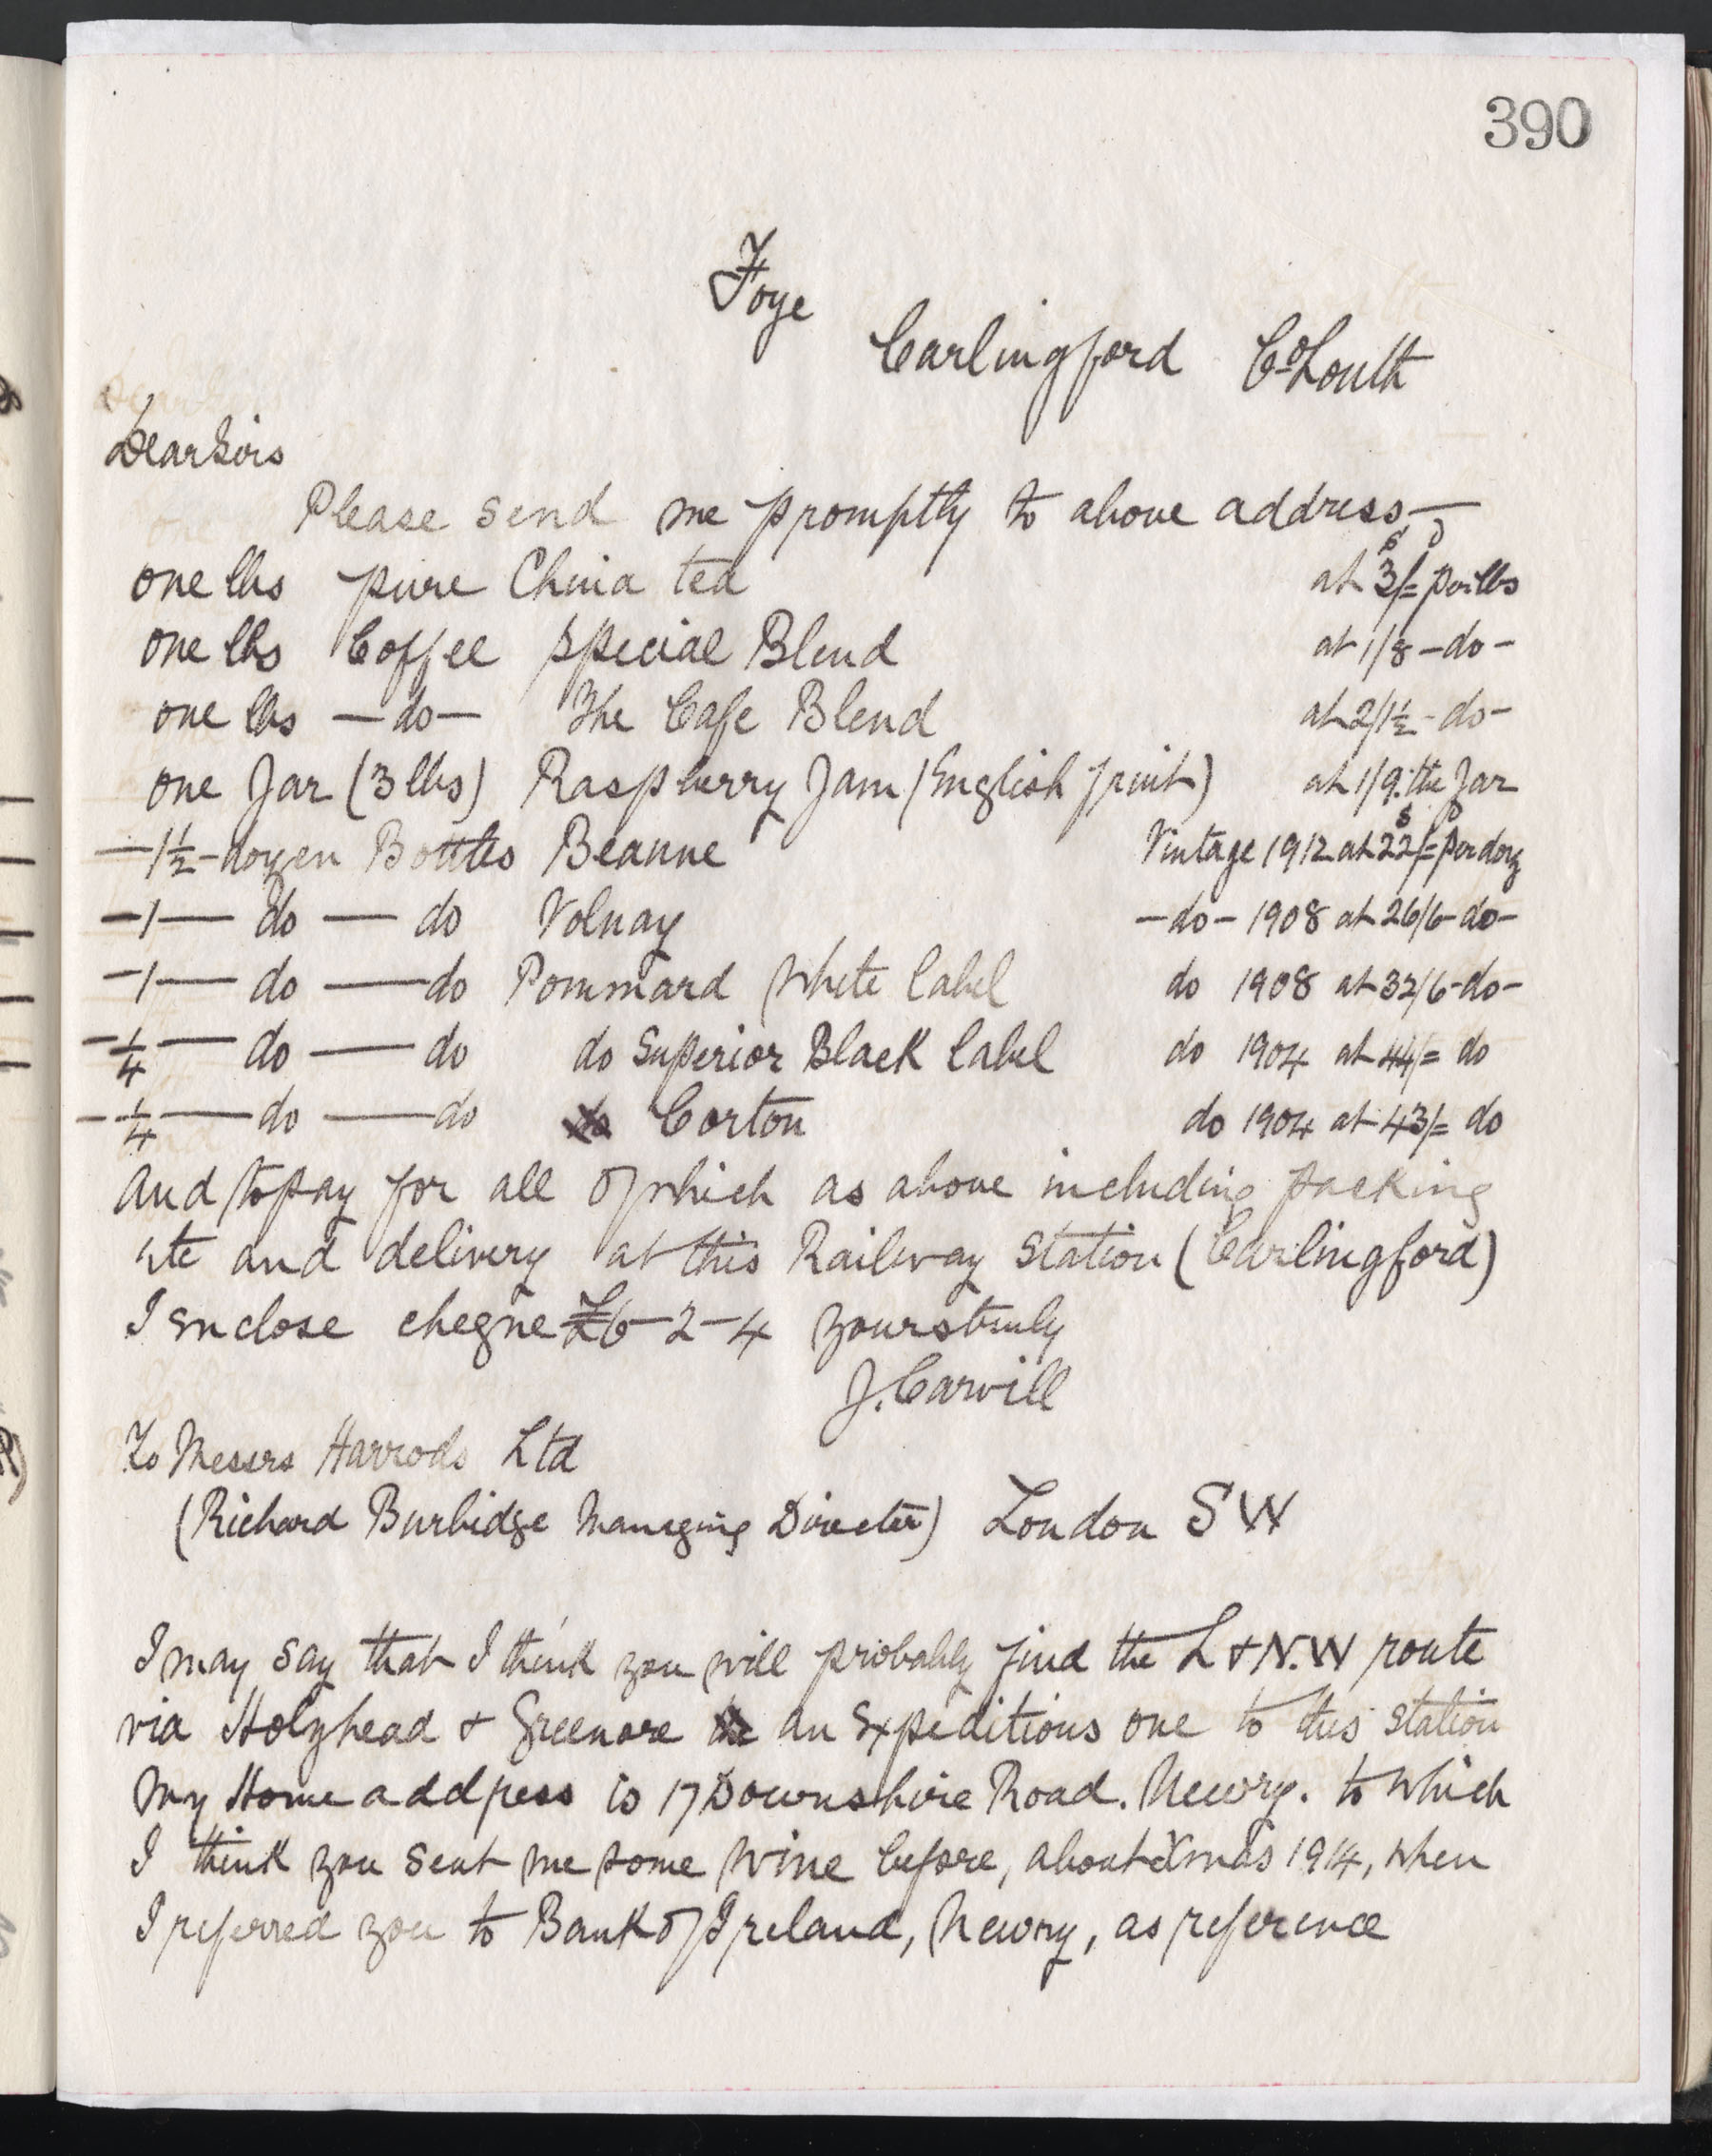 390
Foye
Carlingford Co Louth
Dear Sirs
Please send me promptly to above address,—
one lbs pure China tea at 3s/= per lbs
one lbs Coffee special Blend at 1/8 – do –
one lbs — do — The Cafe Blend at 2/1½ - do –
one Jar (3 lbs) Raspberry Jam (English fruit) at 1/9. the Jar
— 1½ – dozen Bottles Beaune Vintage 1912 at 22s/= per doz
— 1 — do — do Volnay – do – 1908 at 26/6 – do –
— 1 — do — do Pommard White label do 1908 at 32/6 – do –
— ¼ — do — do do Superior Black label do 1904 at 44/= do
— ¼ — do — do do Corton do 1904 at 43/= do
And to pay for all of which as above including packing
etc and delivery at this Railway Station (Carlingford)
I enclose cheque £6–2–4 yours truly
J. Carvill
To Messrs Harrods Ltd
(Richard Burbidge Managing Director) London SW
I may say that I think you will probably find the L & N.W route
via Holyhead & Greenore an expeditious one to this station
My Home address is 17 Downshire Road. Newry. to which
I think you sent me some wine before, about Xmas 1914, when
I referred you to Bank of Ireland, Newry, as reference